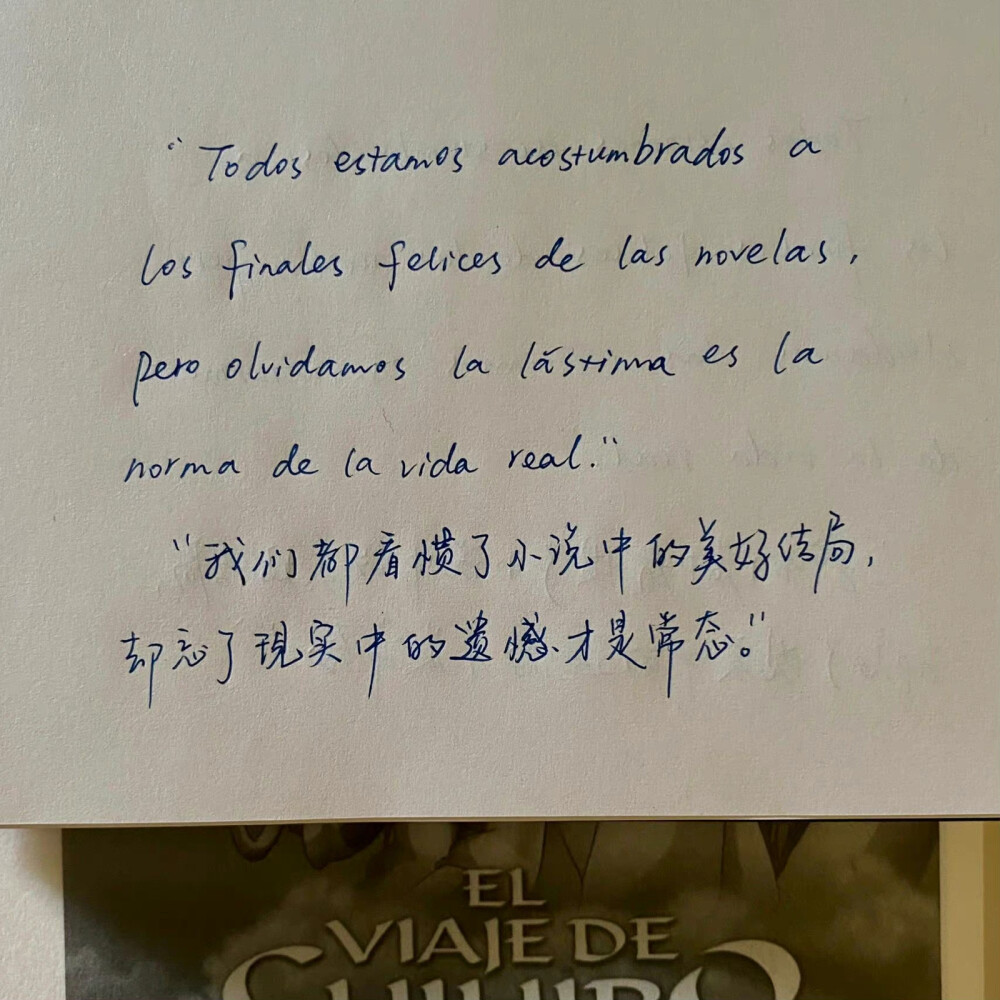 "Todos estamos acostumbrados a
los finales felices de las novelas,
pero olvidamos la lástima es la
norma de la vida real."
"我们都看惯了小说中的美好结局,
却忘了現实中的遗憾才是常态。"
EL
VIAJE DE
CHIHIRO